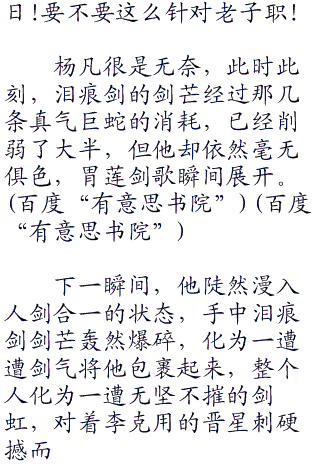 日!要不要这么针对老子职!
杨凡很是无奈，此时此
刻，泪痕剑的剑芒经过那几
条真气巨蛇的消耗，已经削
弱了大半，但他却依然毫无
俱色，胃莲剑歌瞬间展开。
(百度“有意思书院”)(百度
“有意思书院”)
下一瞬间，他陡然漫入
人剑合一的状态，手中泪痕
剑剑芒轰然爆碎，化为一遭
遭剑气将他包裹起来，整个
人化为一遭无坚不摧的剑
虹，对着李克用的晋星刺硬
撼而